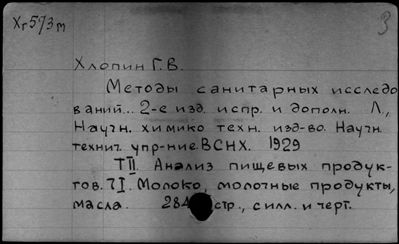 Хг573м
3
Хлопин Г.В.
Методы санитарных исследо
ваний... 2-е изд. испр. и дополн. Л,
Научн. химико техн. изд-во. Научн.
технич. упр-ние ВСНХ. 1929
ТII. Анализ пищевых продук-
тов. ЧI. Молоко, молочные продукты,
масла. 284 стр., с илл. и черт.